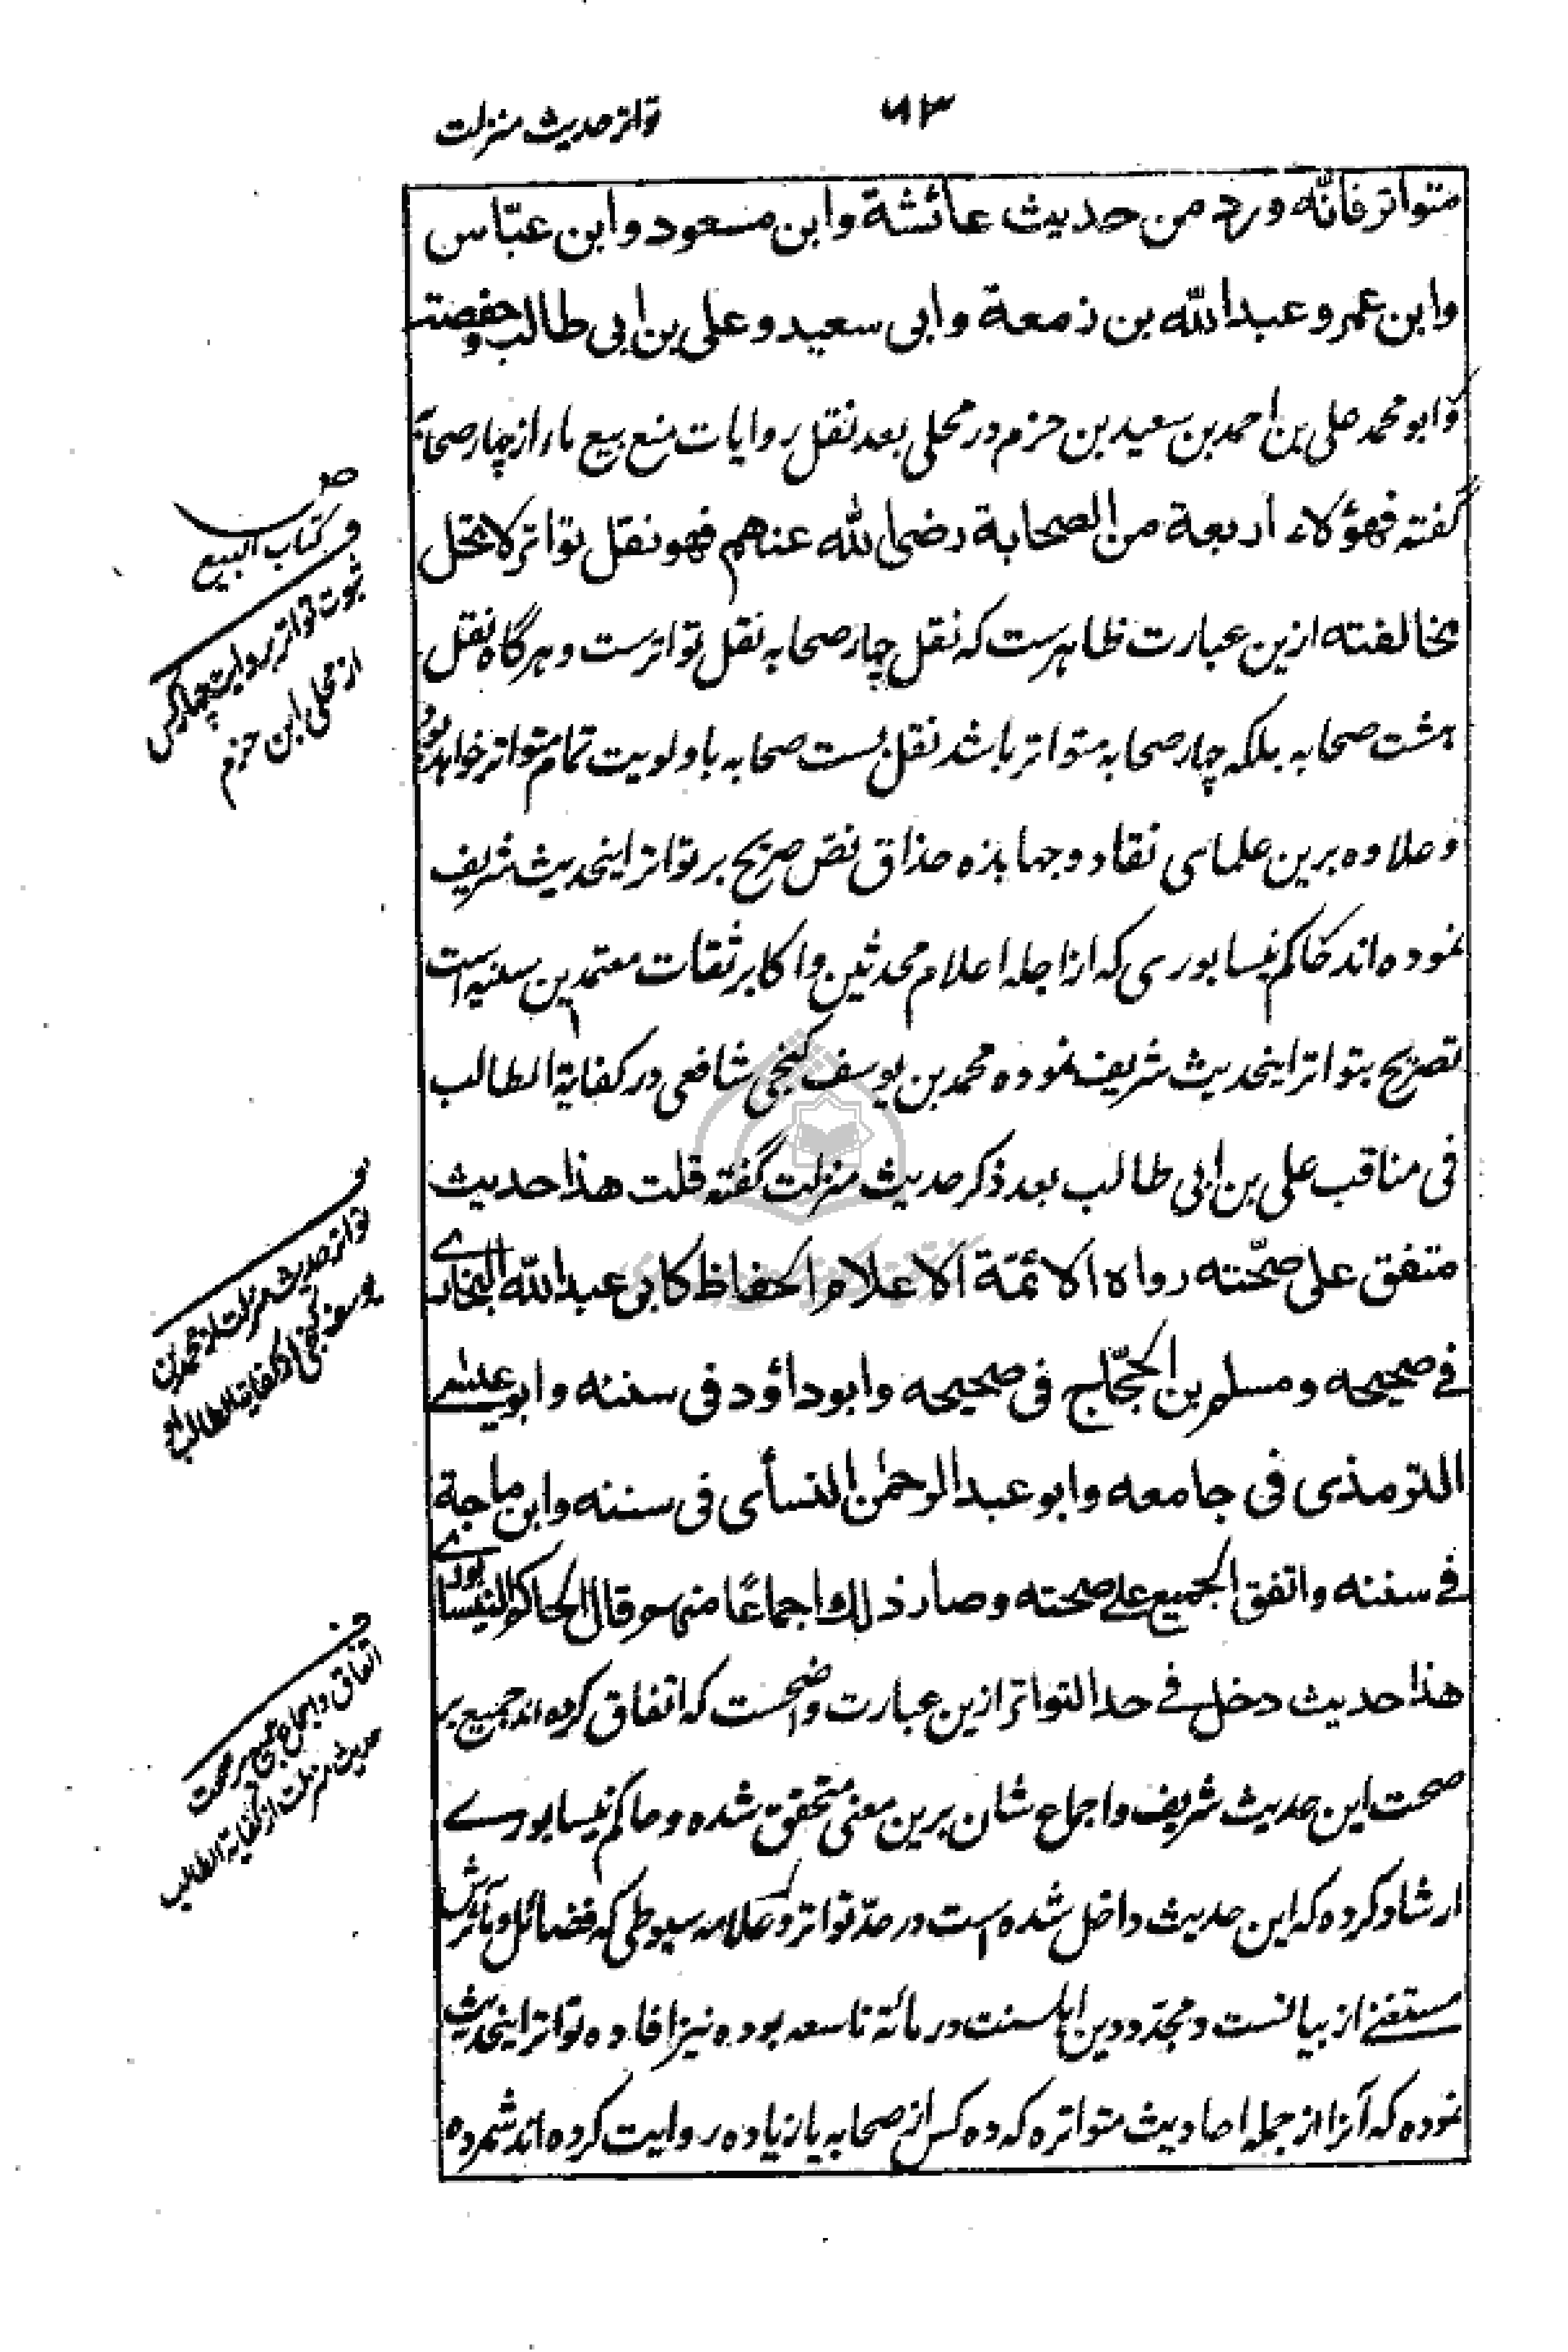 تواتر حدیث منزلت
۶۳
متواتر فانّه ورد من حدیث عائشة وابن مسعود وابن عبّاس
وابن عمر وعبدالله بن زمعة وابی سعید وعلی بن ابی طالب وحفصة
و ابو محمد علی بن احمد بن سعید بن حزم در محلی بعد نقل روایات منع بیع ماء از چار صحابه
گفته فهؤلاء اربعة من الصحابة رضی الله عنهم فهو نقل تواتر لا تحل
مخالفته ازین عبارت ظاهرست که نقل چار صحابه نقل تواترست و هرگاه نقل
هشت صحابه بلکه چار صحابه متواتر باشد نقل بست صحابه باولویت تمام متواتر خواهد بود
و علاوه برین علمای نقاد و جهابذه حذاق نصّ صریح بر تواتر اینحدیث شریف
نموده اند حاکم نیسابوری که از اجله اعلام محدثین و اکابر ثقات معتمدین سنیه است
تصریح بتواتر اینحدیث شریف نموده محمد بن یوسف کنجی شافعی در کفایة الطالب
فی مناقب علی بن ابی طالب بعد ذکر حدیث منزلت گفته قلت هذا حدیث
متفق علی صحّته رواه الائمّة الاعلام الحفاظ کابی عبدالله البخاری
فی صحیحه ومسلم بن الحجّاج فی صحیحه وابو داؤد فی سننه وابو عیسی
الترمذی فی جامعه وابو عبد الرحمٰن النسأی فی سننه وابن ماجة
فی سننه واتفق الجمیع علی صحته وصار ذلك اجماعًا منهم وقال الحاکم النیسابوری
هذا حدیث دخل فی حد التواتر ازین عبارت واضحست که اتفاق کرده اند جمیع بر
صحت این حدیث شریف و اجماع شان برین معنی متحقق شده و حاکم نیسابوری
ارشاد کرده که این حدیث داخل شده است در حدّ تواتر و علامه سیوطی که فضائل و مآثرش
مستغنی از بیانست و مجدّد دین اهلسنت در مائة تاسعه بوده نیز افاده تواتر اینحدیث
نموده که آنرا از جمله احادیث متواتره که ده کس از صحابه یا زیاده روایت کرده اند شمرده
کتاب البیع
ثبوت تواتر بروایت چهار کس
از محلی ابن حزم
تواتر حدیث منزلت از محمد بن
یوسف کنجی از کفایة الطالب
اتفاق و اجماع جمیع بر صحت
حدیث منزلت از کفایة الطالب